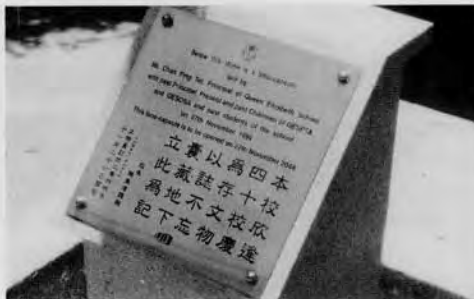 Below this stone is a time-capsule
laid by
Mr. Chan Ping Tat, Principal of Queen Elizabeth School
with past Principal, Present and past Chairmen of QESPTA
and QESOSA and past students of the school
on 27th November
This time-capsule is to be opened on 27th November
本校欣逢
四十校慶
為存文物
以誌不忘
囊藏地下
立此為記